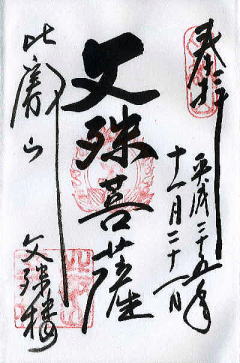 奉拝
平成二十五年
十一月二十一日
文殊菩薩
比叡山
文殊楼